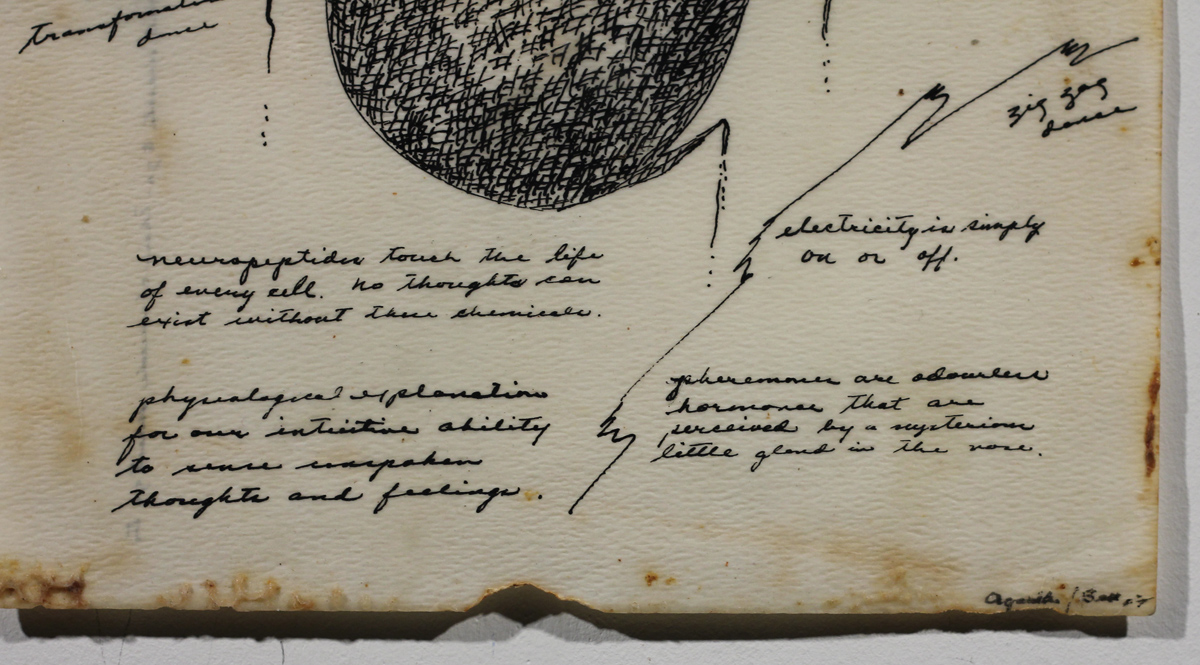 transformation
dance
zig zag
dance
electricity is simply
on or off.
neuropeptides touch the life
of every cell. no thoughts can
exist without these chemicals.
physiological explanation
for our intuitive ability
to sense unspoken
thoughts and feelings.
pheromones are odourless
hormones that are
perceived by a mysterious
little gland in the nose.